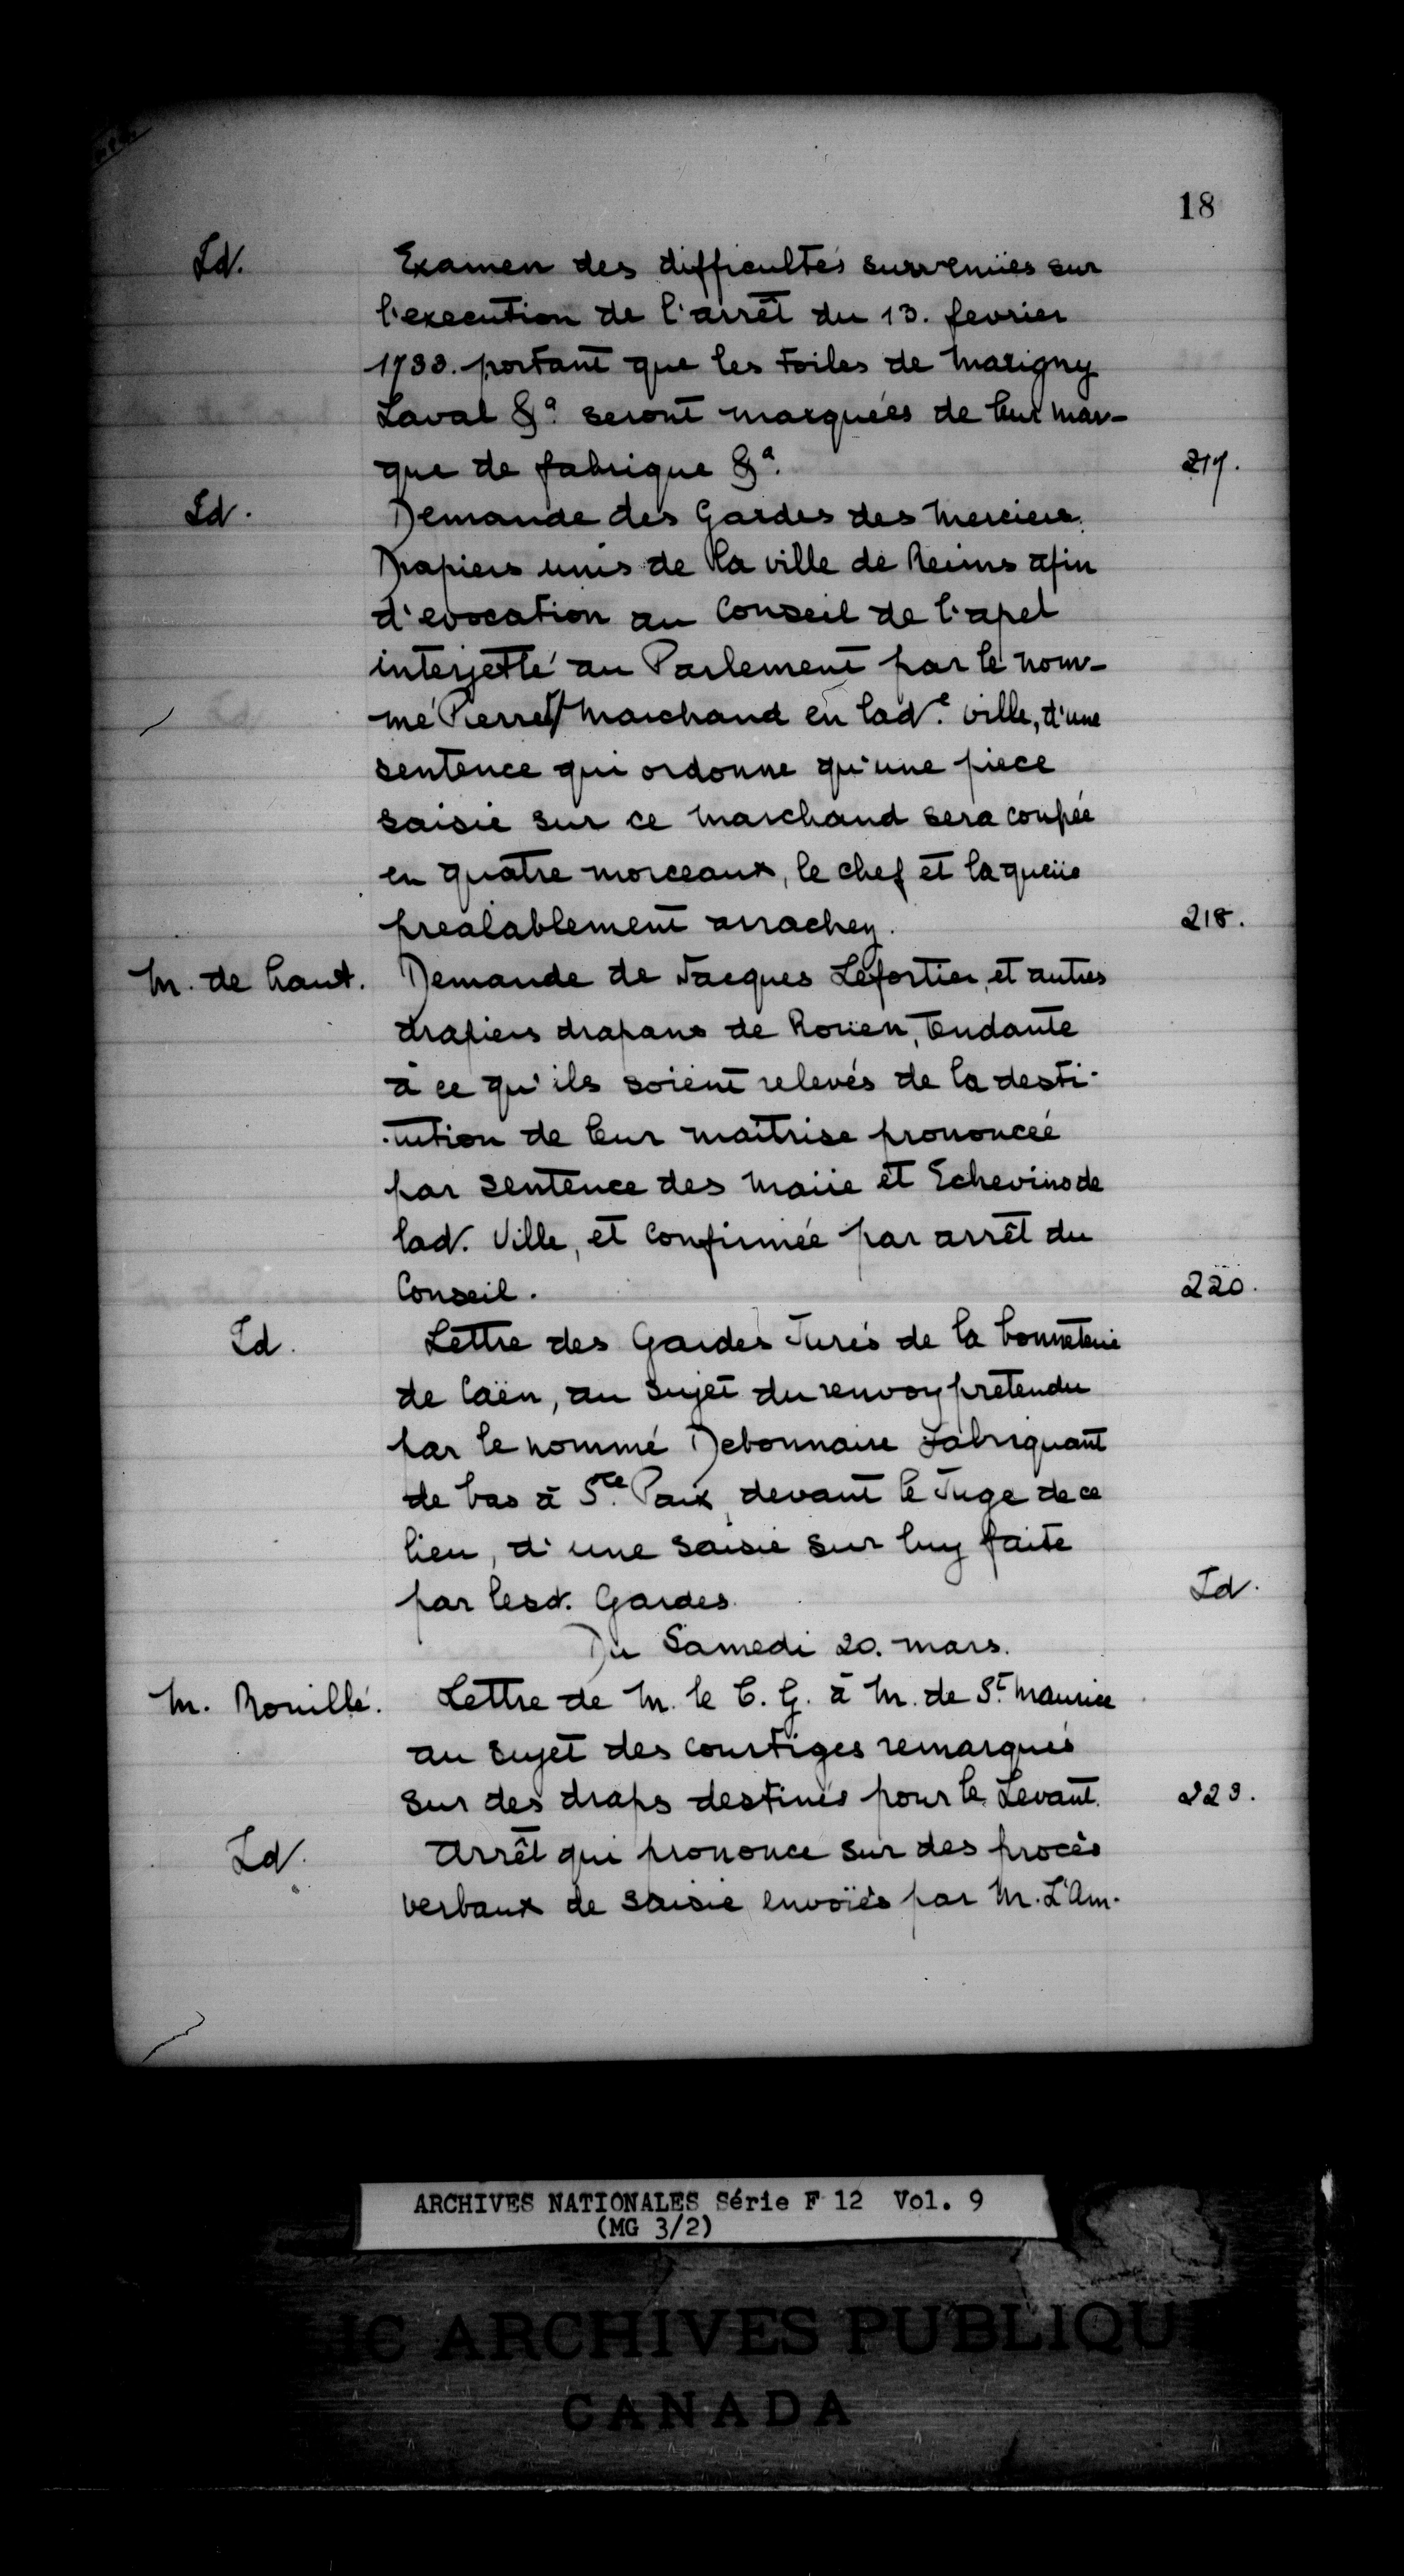 18
Id. Examen des difficultés survenües sur
l'execution de l'arrêt du 13. fevrier
1733. portant que les toiles de Marigny
Laval &a. seront marquées de leur mar-
que de fabrique &a. 217.
Id. Demande des Gardes des Merciers
Drapiers unis de la ville de Reims afin
d'evocation au Conseil de l'apel
interjetté au Parlement par le nom-
mé Pierret Marchand en lad.e ville, d'une
sentence qui ordonne qu'une piece
saisie sur ce Marchand sera coupée
en quatre morceaux, le chef et la queüe
prealablement arrachez. 218.
M. de haut. Demande de Jacques Lefortier, et autres
drapiers drapans de Roüen, tendante
à ce qu'ils soient relevés de la desti-
-tution de leur maîtrise prononcée
par sentence des Maire et Echevins de
lad. Ville, et confirmée par arrêt du
Conseil. 220.
Id. Lettre des Gardes Jurés de la bonneterie
de Caën, au sujet du renvoy pretendu
par le nommé Debonnaire fabriquant
de bas à Ste. Paix, devant le Juge de ce
lieu, d'une saisie sur luy faite
par lesd. Gardes. Id.
Du Samedi 20. mars.
M. Rouillé. Lettre de M. le C. G. à M. de St. Maurice
au sujet des courtiges remarqués
sur des draps destinés pour le Levant. 223.
Id. Arrêt qui prononce sur des procès
verbaux de saisie envoïés par M. L'Am-
ARCHIVES NATIONALES Série F 12 Vol. 9
(MG 3/2)
IC ARCHIVES PUBLIQU
CANADA